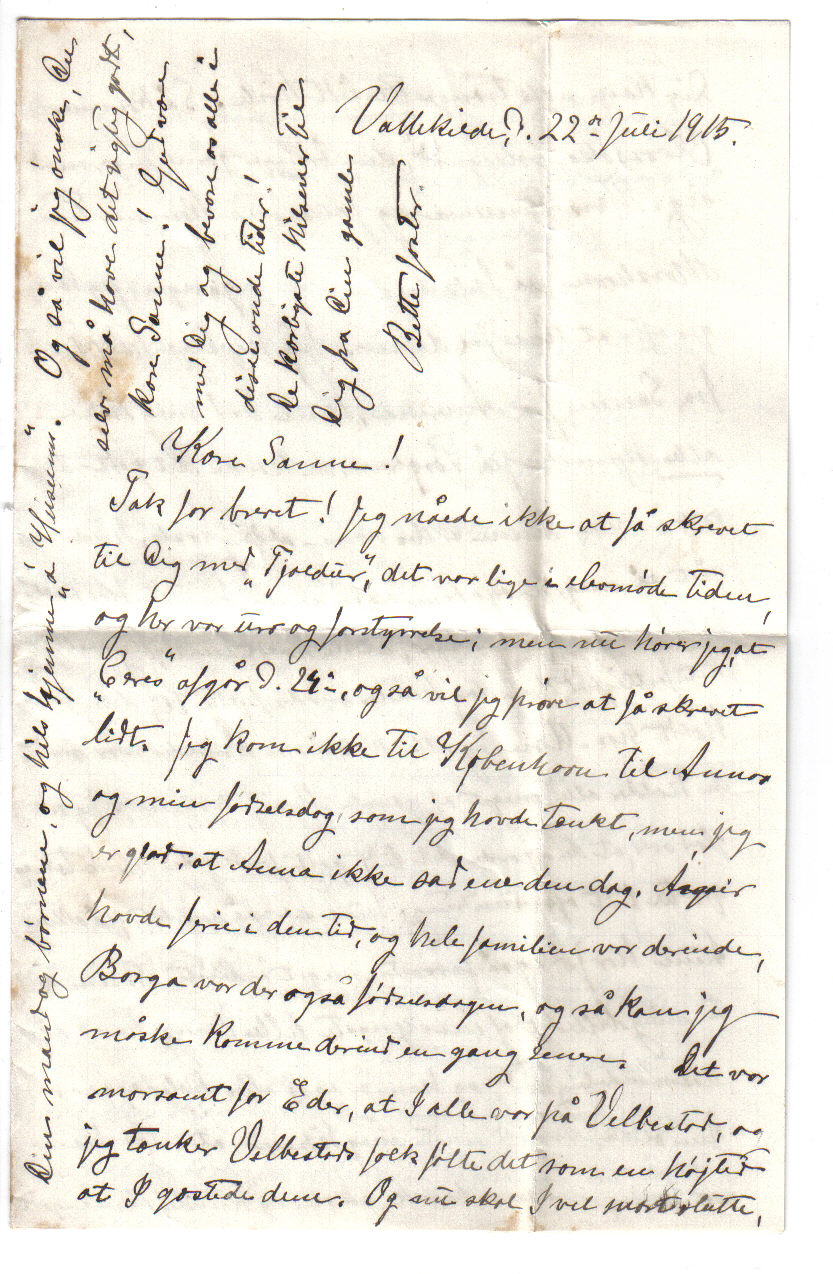 Vallekilde, d. 22de Juli 1915.
Kære Sanne!
Tak for brevet! Jeg nåede ikke at få skrevet
til Dig med „Tjaldur“, det var lige i elevmøde tiden,
og her var uro og forstyrrelse; men nu hører jeg, at
„Ceres“ afgår d. 24de, også vil jeg prøve at få skrevet
lidt. Jeg kom ikke til København til Annas
og min fødselsdag, som jeg havde tænkt, men jeg
er glad, at Anna ikke sad ene den dag. Ásgeir
havde ferie i den tid, og hele familien var derinde,
Borga var der også fødselsdagen, og så kan jeg
måske komme derind en gang senere. Det var
morsomt for Eder, at I alle var på Velbestad, og
jeg tænker Velbestads folk følte det som en højtid
at I gæstede dem. Og nu skal I vel snart slutte,
Din mand og børnene, og hils hjemme „á Húsunum“. Og så vil jeg ønske, Du
selv må have det rigtig godt,
kære Sanne! Gud være
med Dig og bevare os alle i
disse onde tider!
De kærligste hilsener til
Dig fra Din gamle
Bette faster.